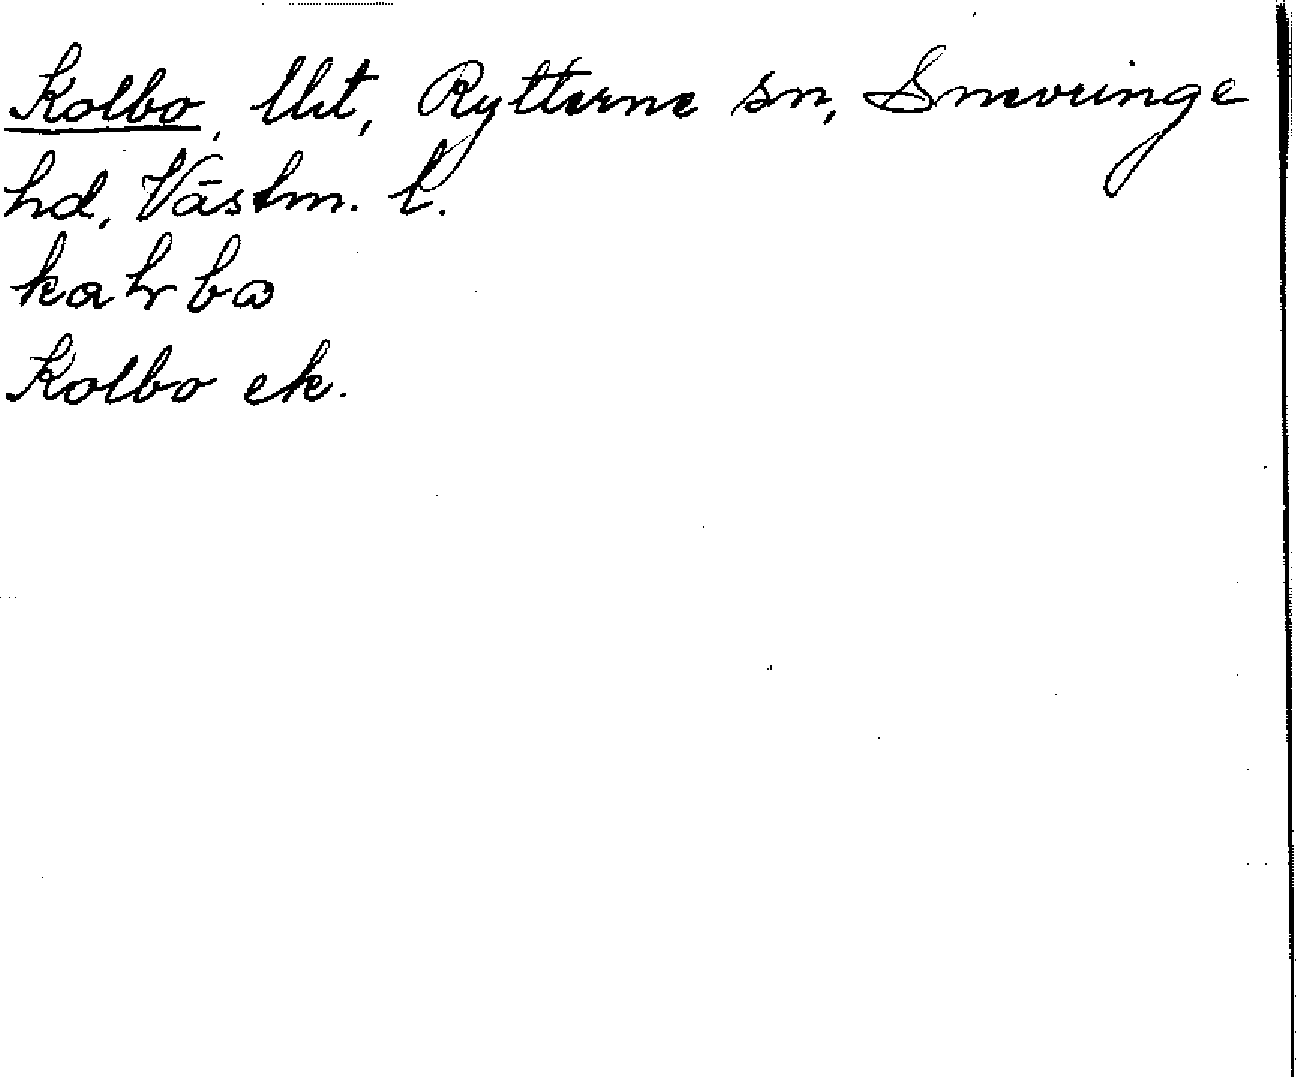 Kolbo, lht, Rytterne sn, Snevringe
hd, Västm. l.
Kolbo ek.